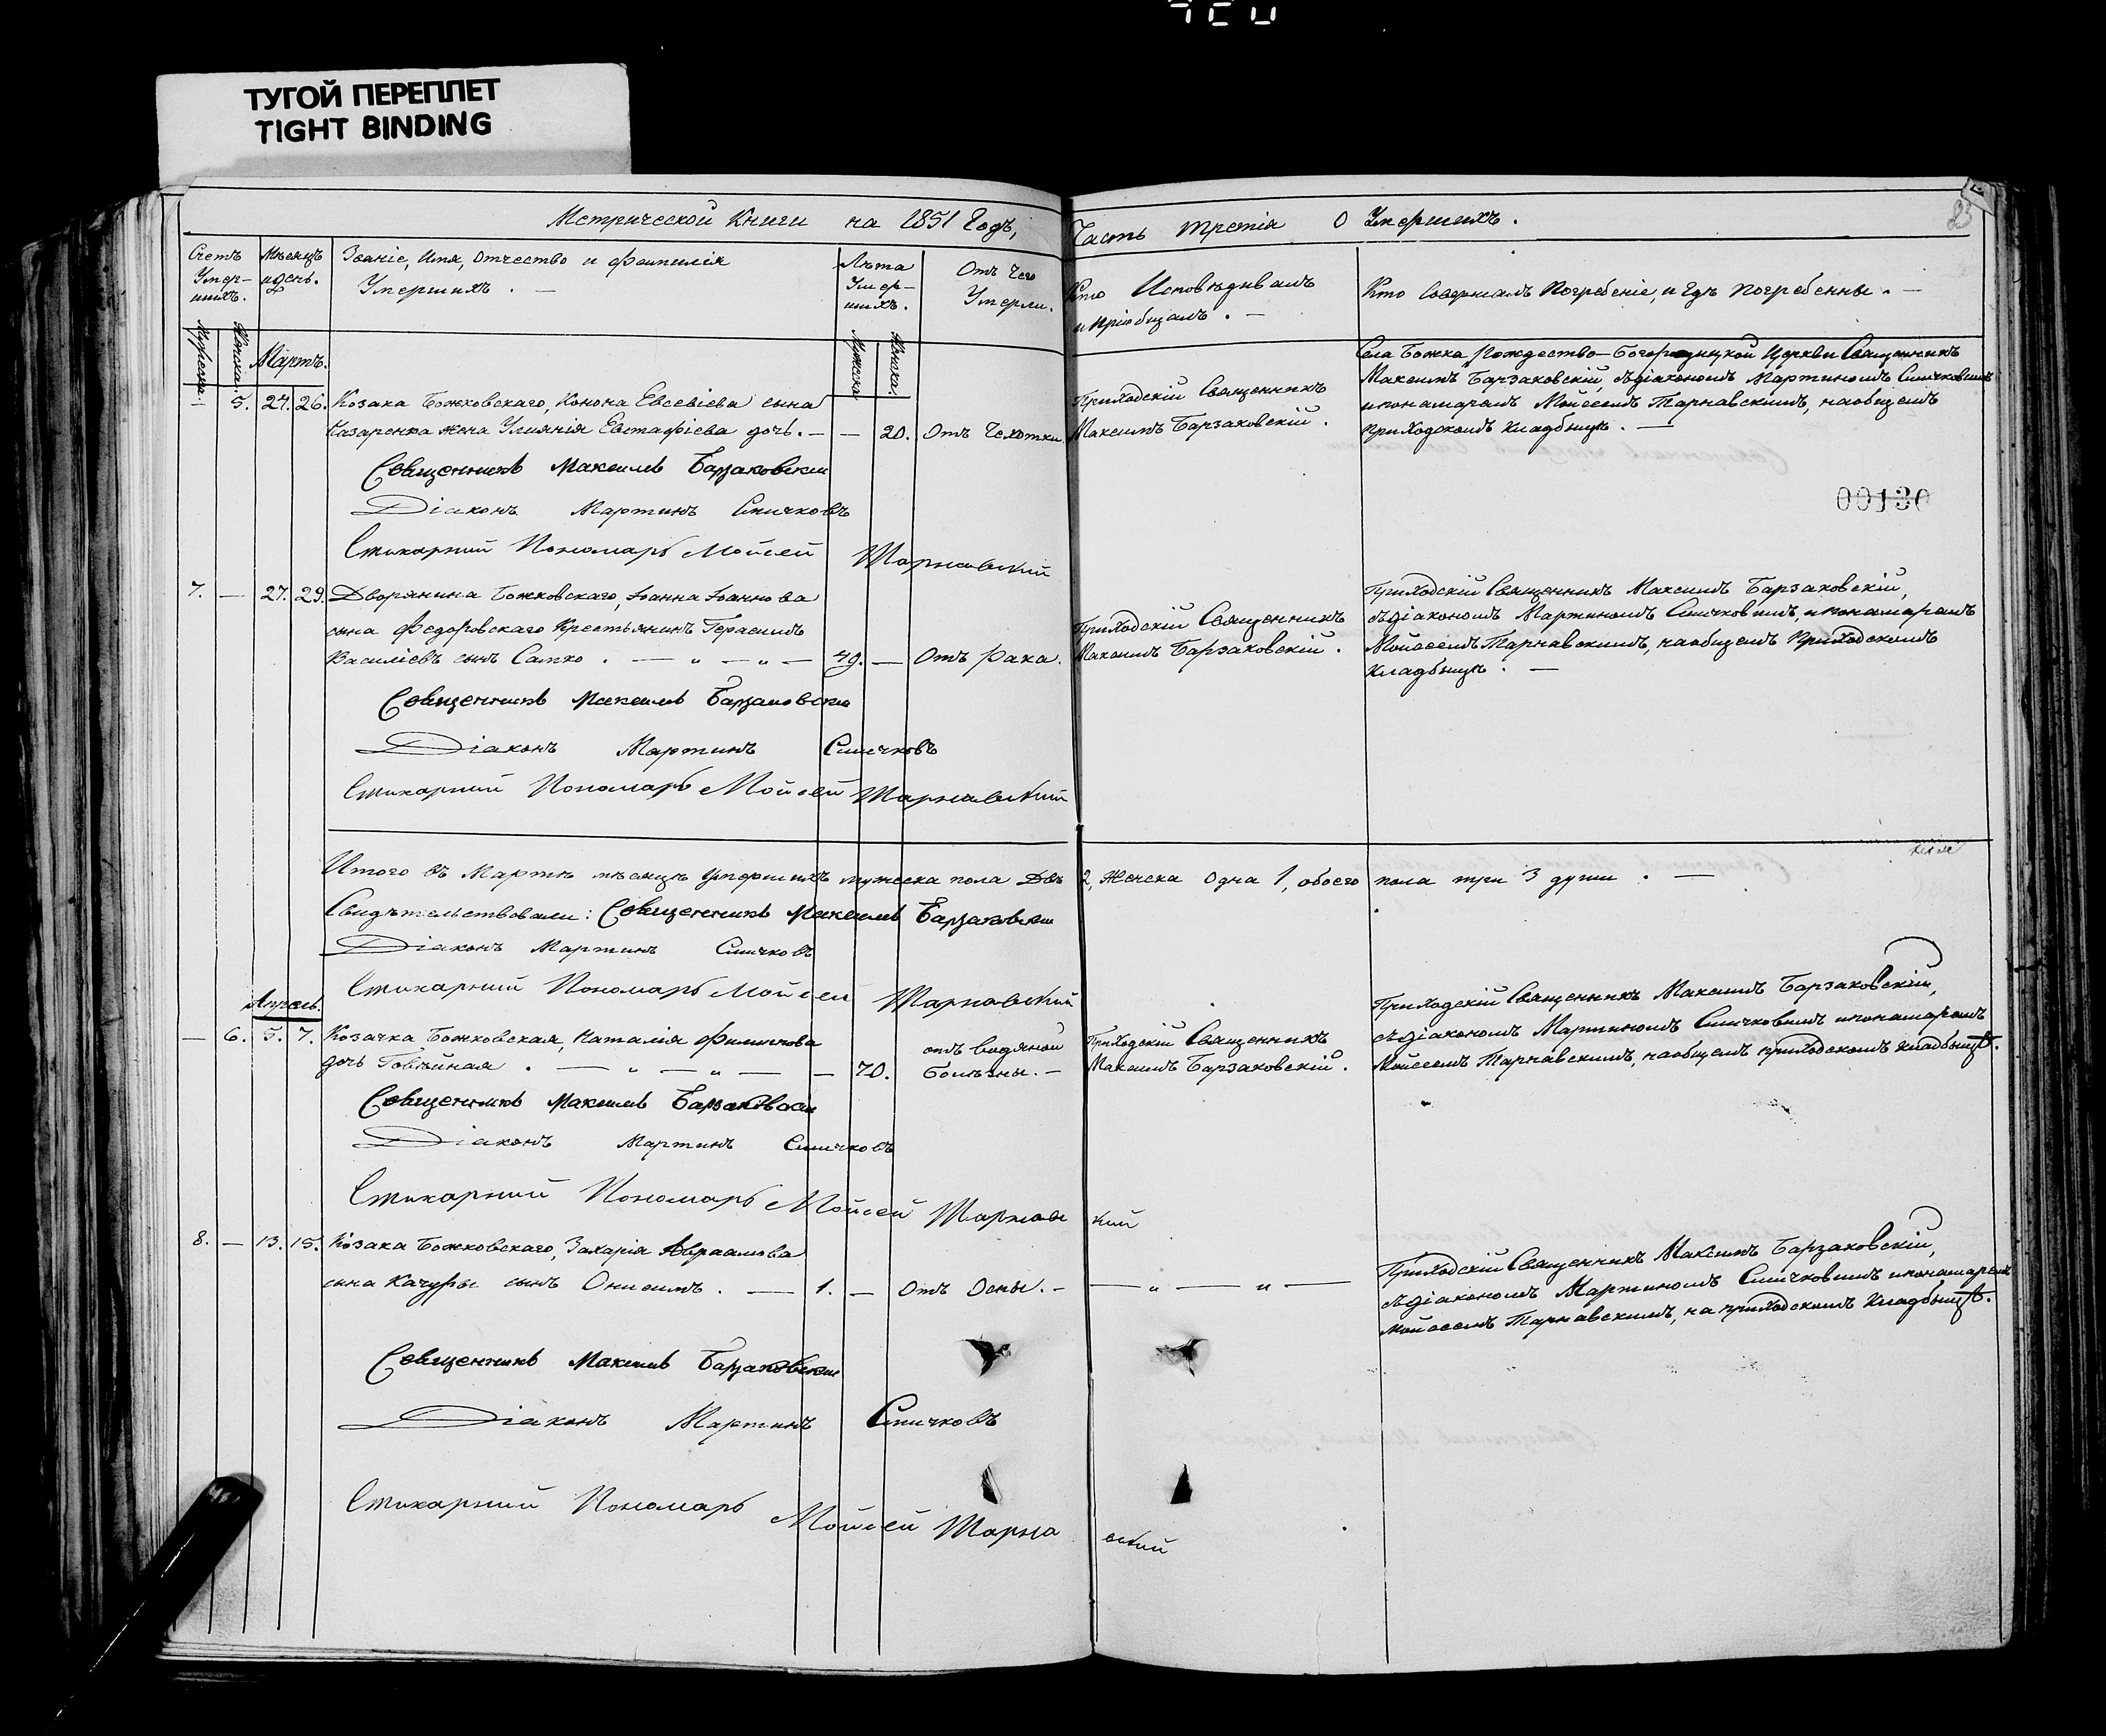 ТУГОЙ ПЕРЕПЛЕТ
TIGHT BINDING
Метрической Книги на 1851 Годъ,
Часть третія О Умершихъ.
23
Счетъ Умер-шихъ.
Мѣсяцъ и день.
Званіе, Имя, Отчество и Фамилія
Умершихъ. —
Лѣта Умер-шихъ.
Отъ Чего Умерли.
Кто Исповѣдивалъ
и пріобщалъ. —
Кто Совершалъ Погребеніе, и Гдѣ Погребенны. —
Мужеска.
Женска.
Мартъ.
Мужеска
Женска.
— 5. 24. 26. Козака Божковскаго, Конона Евсевіева сына
Назаренка жена Уліянія Евстафіева дочь. — — 20. Отъ Чехотки
Приходскій Священникъ
Максимъ Барзаковскій.
Села Божка Рождество-Богородицкой Церкви Священникъ
Максимъ Барзаковскій, съ діакономъ Мартиномъ Сличковымъ
и понамаремъ Мойсеемъ Тарнавскимъ, на общемъ
приходскомъ кладбищѣ. —
Священникъ Максимъ Барзаковскій
Діаконъ Мартинъ Сличковъ
Стихарний Пономарь Мойсей Тарнавский
00130
7. — 27. 29. Дворянина Божковскаго, Іоанна Іоаннова
сына Федоровскаго Крестьянинъ Герасимъ
Василіевъ сынъ Сапко. — „ — „ — 49. — Отъ Рака.
Приходскій Священникъ
Максимъ Барзаковскій.
Приходскій Священникъ Максимъ Барзаковскій,
съ діакономъ Мартиномъ Сличковымъ, и понамаремъ
Мойсеемъ Тарнавскимъ, на общемъ Приходскомъ
Кладбищѣ. —
Священникъ Максимъ Барзаковскій
Діаконъ Мартинъ Сличковъ
Стихарний Пономарь Мойсей Тарнавский
Итого въ Мартѣ мѣсяцѣ умершихъ мужеска пола Двѣ 2, Женска Одна 1, обоего пола три 3 души. —
Свидѣтельствовали: Священникъ Максимъ Барзаковскій
Діаконъ Мартинъ Сличковъ
Стихарний Пономарь Мойсей Тарнавский
Апрель.
— 6. 5. 7. Козачка Божковская, Наталія Филипова
дочь Говѣйная. — „ — „ — — 70. отъ водяной
болѣзны. —
Приходскій Священникъ
Максимъ Барзаковскій.
Приходскій Священникъ Максимъ Барзаковскій,
съ діакономъ Мартиномъ Сличковымъ и понамаремъ
Мойсеемъ Тарнавскимъ, на общемъ приходскомъ кладбищѣ.
Священникъ Максимъ Барзаковскій
Діаконъ Мартинъ Сличковъ
Стихарний Пономарь Мойсей Тарнавский
8. — 13. 15. Козака Божковскаго, Захарія Авраамова
сына Качуры сынъ Онисимъ. — 1. — Отъ Оспы. — — „ — „ —
Приходскій Священникъ Максимъ Барзаковскій,
съ діакономъ Мартиномъ Сличковымъ и понамаремъ
Мойсеемъ Тарнавскимъ, на приходскомъ Кладбищѣ.
Священникъ Максимъ Барзаковскій
Діаконъ Мартинъ Сличковъ
Стихарний Пономарь Мойсей Тарнавский